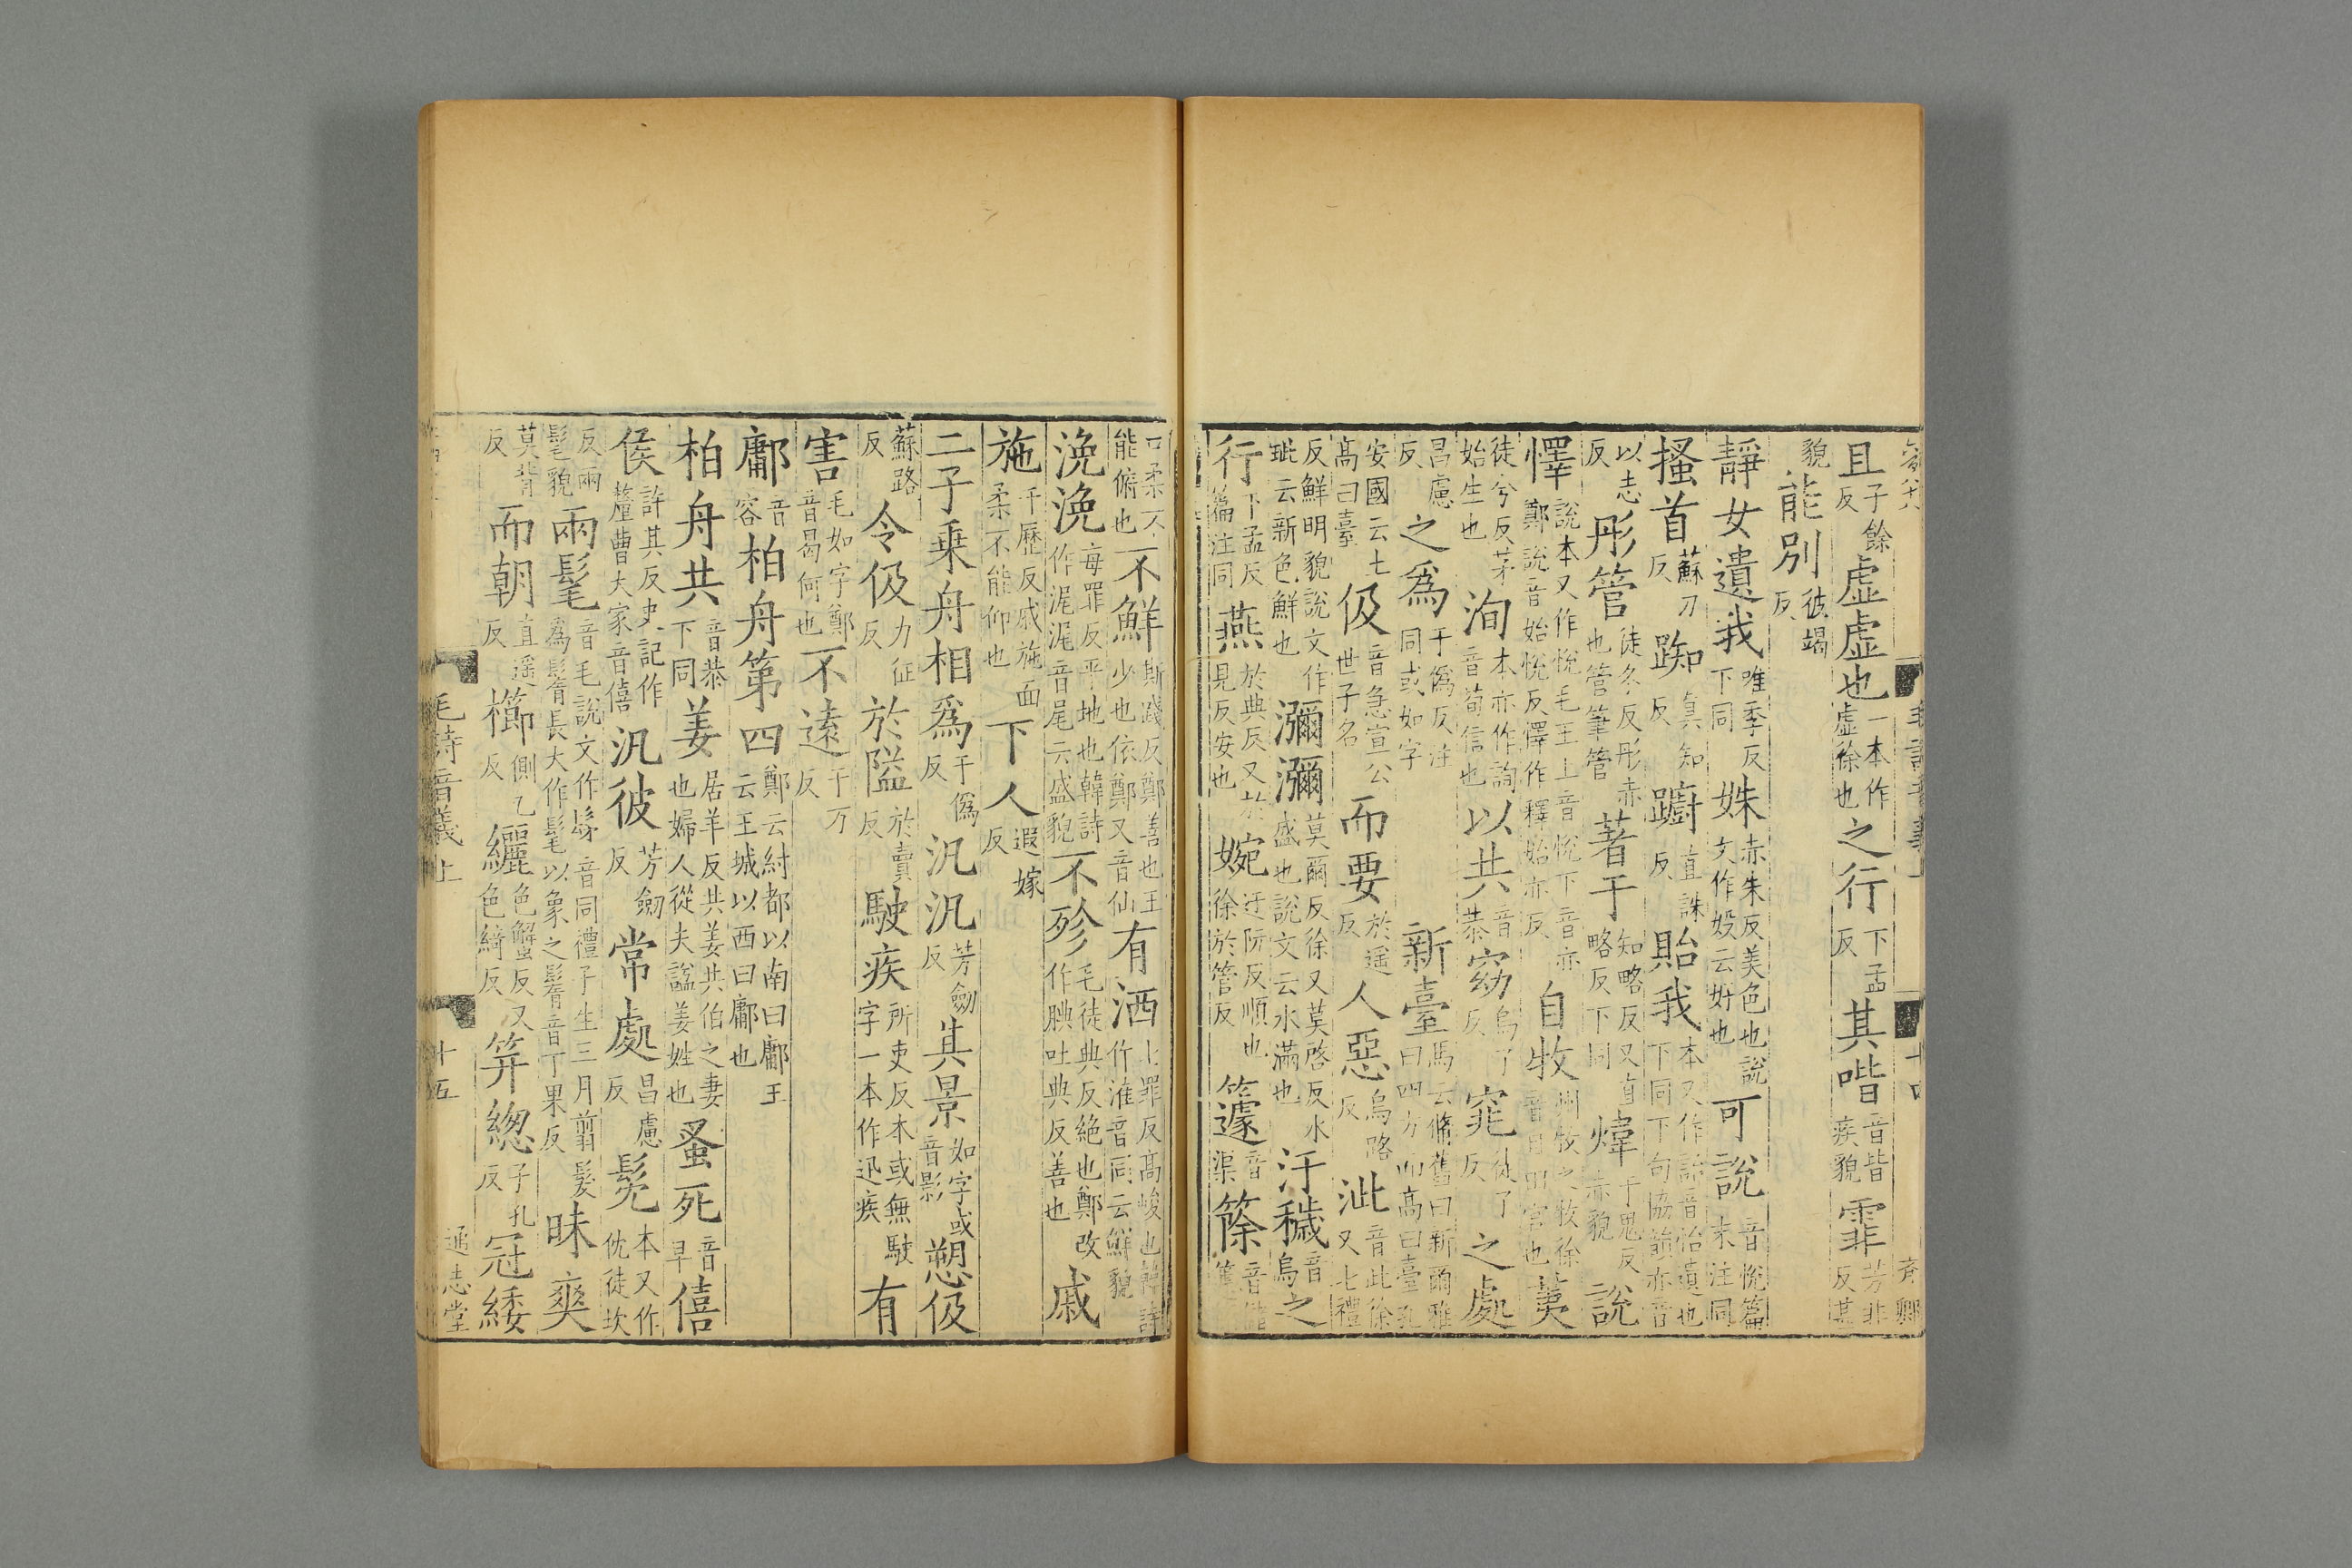 且子餘反虛虛也一本作虛徐也之行下孟反其喈音皆疾貌霏芳非反甚
貌能別彼竭反
靜女遺我唯季反下同姝赤朱反美色也說文作㛗云好也可說音悅篇末注同
搔首蘇刀反踟直知反躕直誅反貽我本又作詒音怡遺也下同下句協韻亦音
以志反彤管徒冬反彤赤也管筆管著于知略反又直略反下同煒于鬼反赤貌說
懌說本又作悅毛王上音悅下音亦鄭說音始悅反懌作釋始亦反自牧州牧之牧徐音目田官也荑
徒兮反茅始生也洵本亦作詢音荀信也以共音恭窈烏了反窕徒了反之處
昌慮反之為于偽反注同或如字新臺馬云脩舊曰新爾雅曰四方而高曰臺孔
安國云土高曰臺伋音急宣公世子名而要於遥反人惡烏路反泚音此徐又七禮
反鮮明貌說文作玼云新色鮮也瀰瀰莫爾反徐又莫啓反水盛也說文云水滿也汙穢音烏之
行下孟反篇注同燕於典反又於見反安也婉迂阮反順也徐於管反籧音渠篨音儲
口柔不能俯也不鮮斯踐反鄭善也王少也依鄭又音仙有洒七罪反高峻也韓詩作漼音同云鮮貌
浼浼每罪反平地也韓詩作浘浘音尾云盛貌不殄毛徒典反絕也鄭改作腆吐典反善也戚
施千歷反戚施面柔不能仰也下人遐嫁反
二子乗舟相為于僞反汎汎芳劒反其景如字或音影愬伋
蘇路反令伋力征反於隘於賣反駛疾所吏反本或無駛字一本作迅疾有
害毛如字鄭音曷何也不遠于万反
鄘音容柏舟第四鄭云紂都以南曰鄘王云王城以西曰鄘也
柏舟共音恭下同姜居羊反共姜共伯之妻也婦人從夫謚姜姓也蚤死音早僖
侯許其反史記作釐曹大家音僖汎彼芳劒反常處昌慮反髧本又作㐲徒坎
反兩髦貌兩髦音毛說文作髳音同禮子生三月翦髮為鬌長大作髦以象之鬌音丁果反昧爽
莫背反而朝直遥反櫛側乙反纚色蟹反又色綺反笄緫子孔反冠緌
毛詩音義上 十五 通志堂